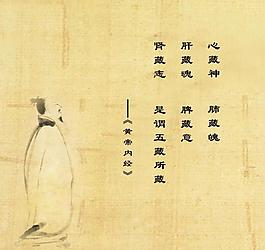 心藏神　肺藏魄
肝藏魂　脾藏意
肾藏志　是谓五藏所藏
——《黄帝内经》